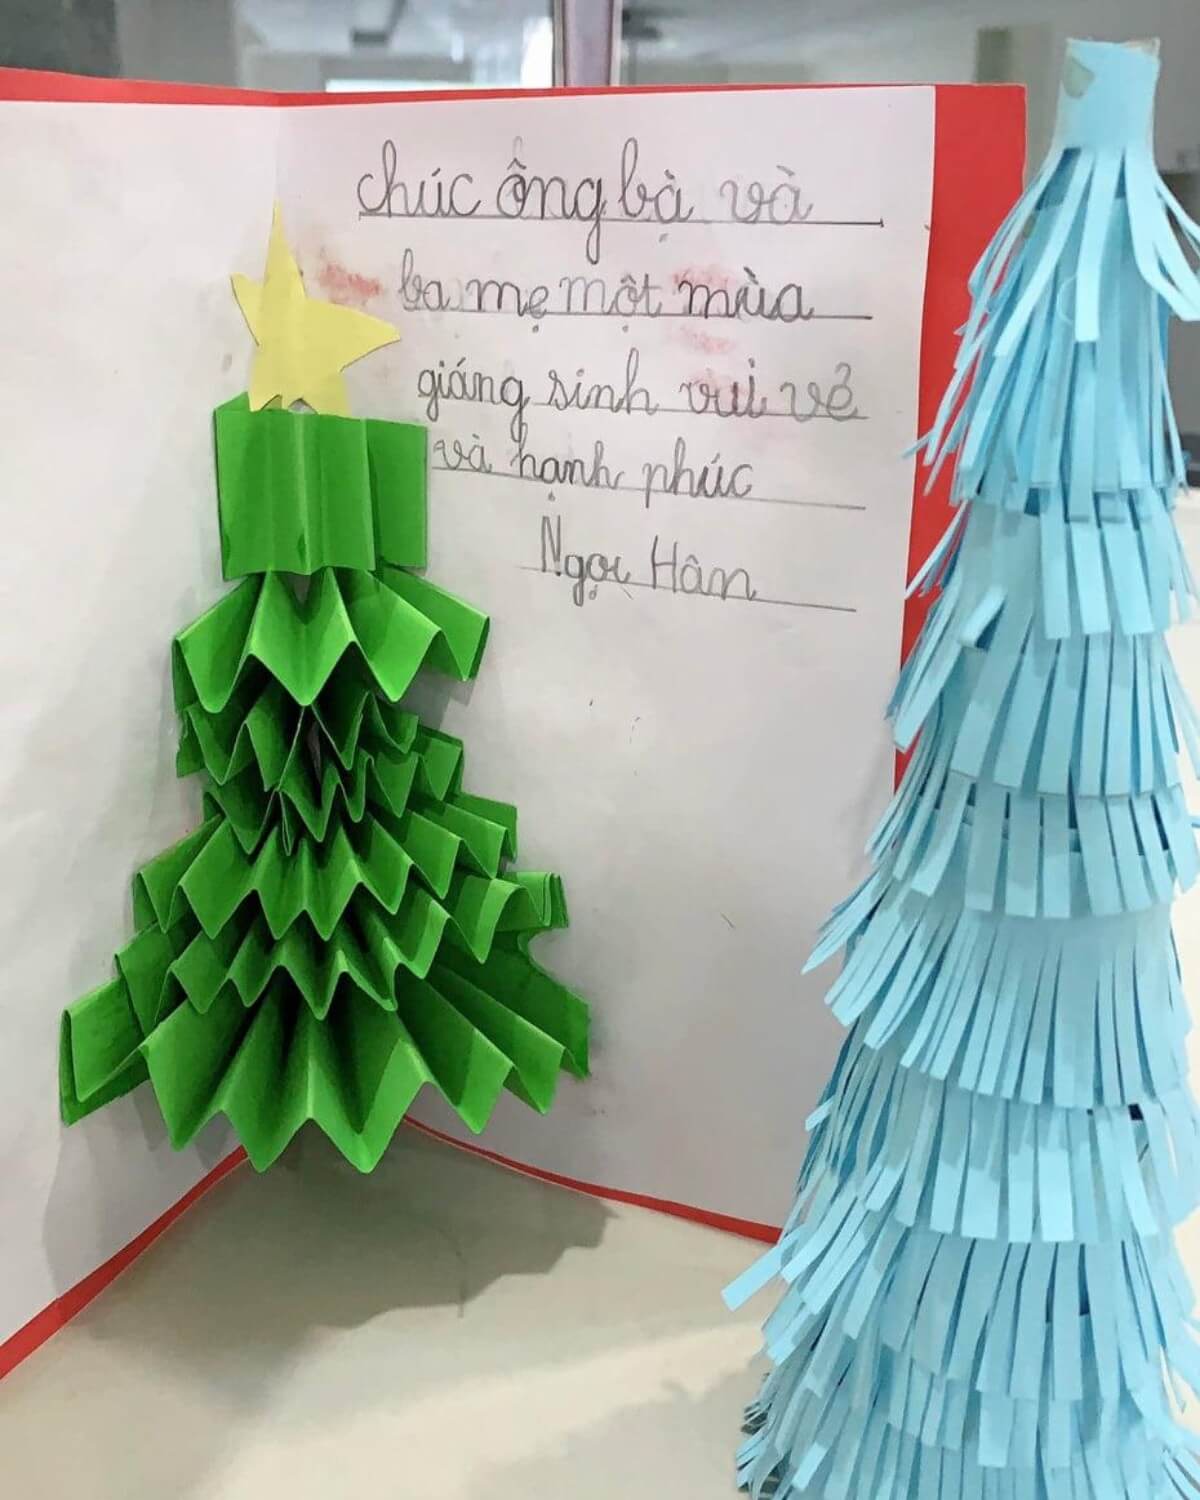 chúc ông bà và
ba mẹ một mùa
giáng sinh vui vẻ
và hạnh phúc
Ngọc Hân